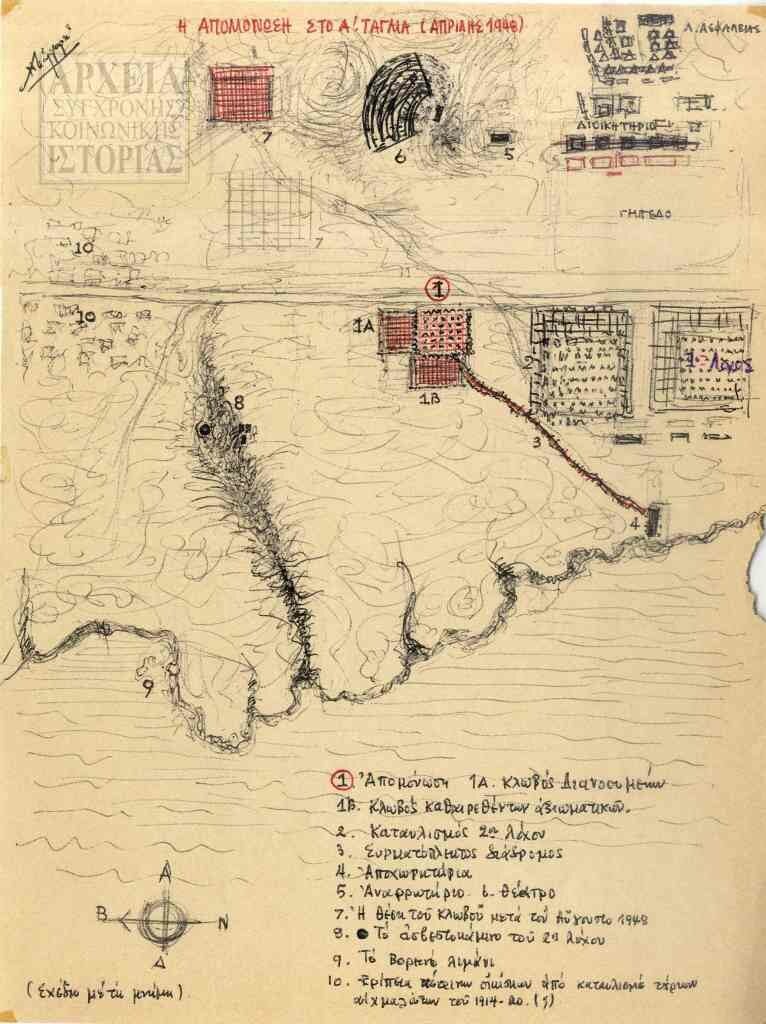 Η ΑΠΟΜΟΝΩΣΗ ΣΤΟ Α! ΤΑΓΜΑ (ΑΠΡΙΛΗΣ 1948)
Λ. ΑΣΦΑΛΕΙΑΣ
ΑΡΧΕΙΑ
ΣΥΓΧΡΟΝΗΣ
ΚΟΙΝΩΝΙΚΗΣ
ΙΣΤΟΡΙΑΣ
7
6
5
ΔΙΟΙΚΗΤΗΡΙΟ
ΓΗΠΕΔΟ
7
10
11
1
10
1Α
2
1ος Λόχος
1Β
8
3
4
9
1 Ἀπομόνωση 1Α. Κλωβός Διανοουμένων
1Β. Κλωβός καθαιρεθέντων ἀξιωματικῶν.
2. Καταυλισμός 2ου Λόχου
3. Συρματόπλεκτος διάδρομος
4. Αποχωρητήρια
5. Ἀναρρωτήριο 6. Θέατρο
7. Ἡ θέση τοῦ κλωβοῦ μετά τον Αὔγουστο 1948
8. Το ἀσβεστοκάμινο τοῦ 2ου λόχου
9. Το Βορεινό λιμάνι
10. Ερίπεια πέτρινων οἰκίσκων ἀπό καταυλισμό
αἰχμαλώτων τοῦ 1914-20.
Α
Β
Ν
Δ
(Σχέδιο μέ τη μνήμη).